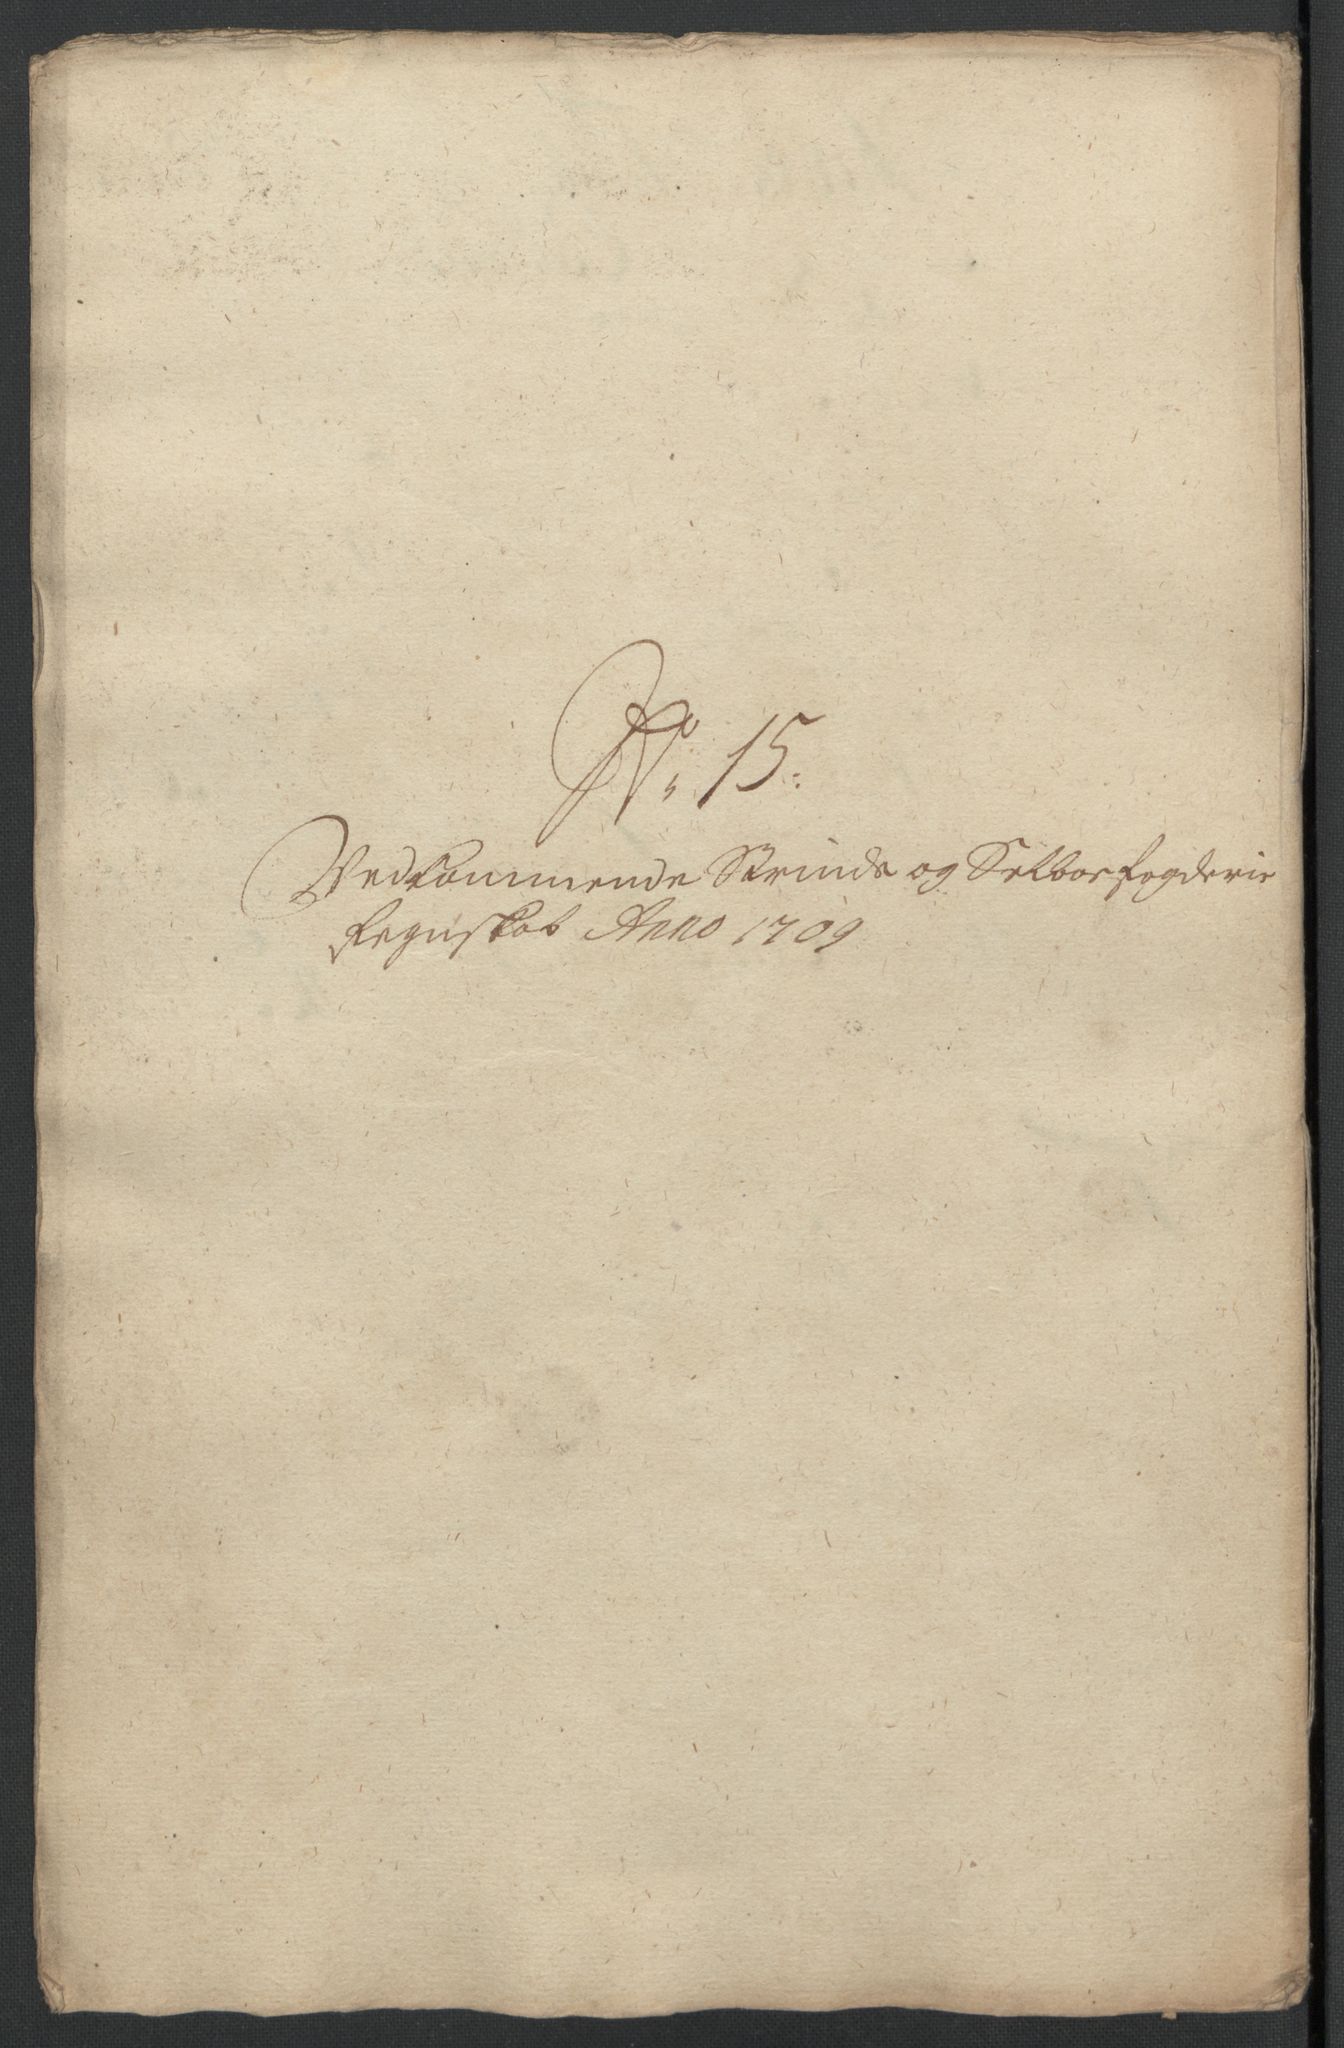 No. 15.
Vedkommende Strinds og Selboe fogderie
Regnskab Anno 1709